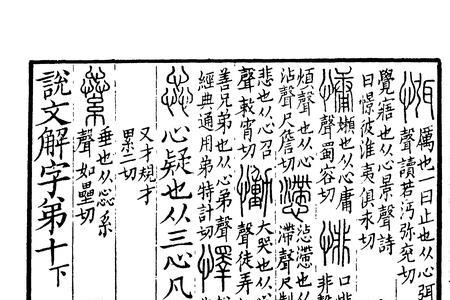 㥝厲也一曰止也从心弭
聲讀若沔弥兖切
覺寤也从心景聲詩
曰憬彼淮夷俱永切
慵嬾也从心庸
聲蜀容切
悱口悱
非
煩聲也从心
沾聲尺詹切
懘
懘也从心
滯聲尺制
悲也从心召
聲敕宵切
慟大哭也从心
聲徒弄
善兄弟也从心弟聲
經典通用弟特計切
懌
惢心疑也从三心凡
又才規才
累二切
繠垂也从惢糸
聲如壘切
說文解字弟十下